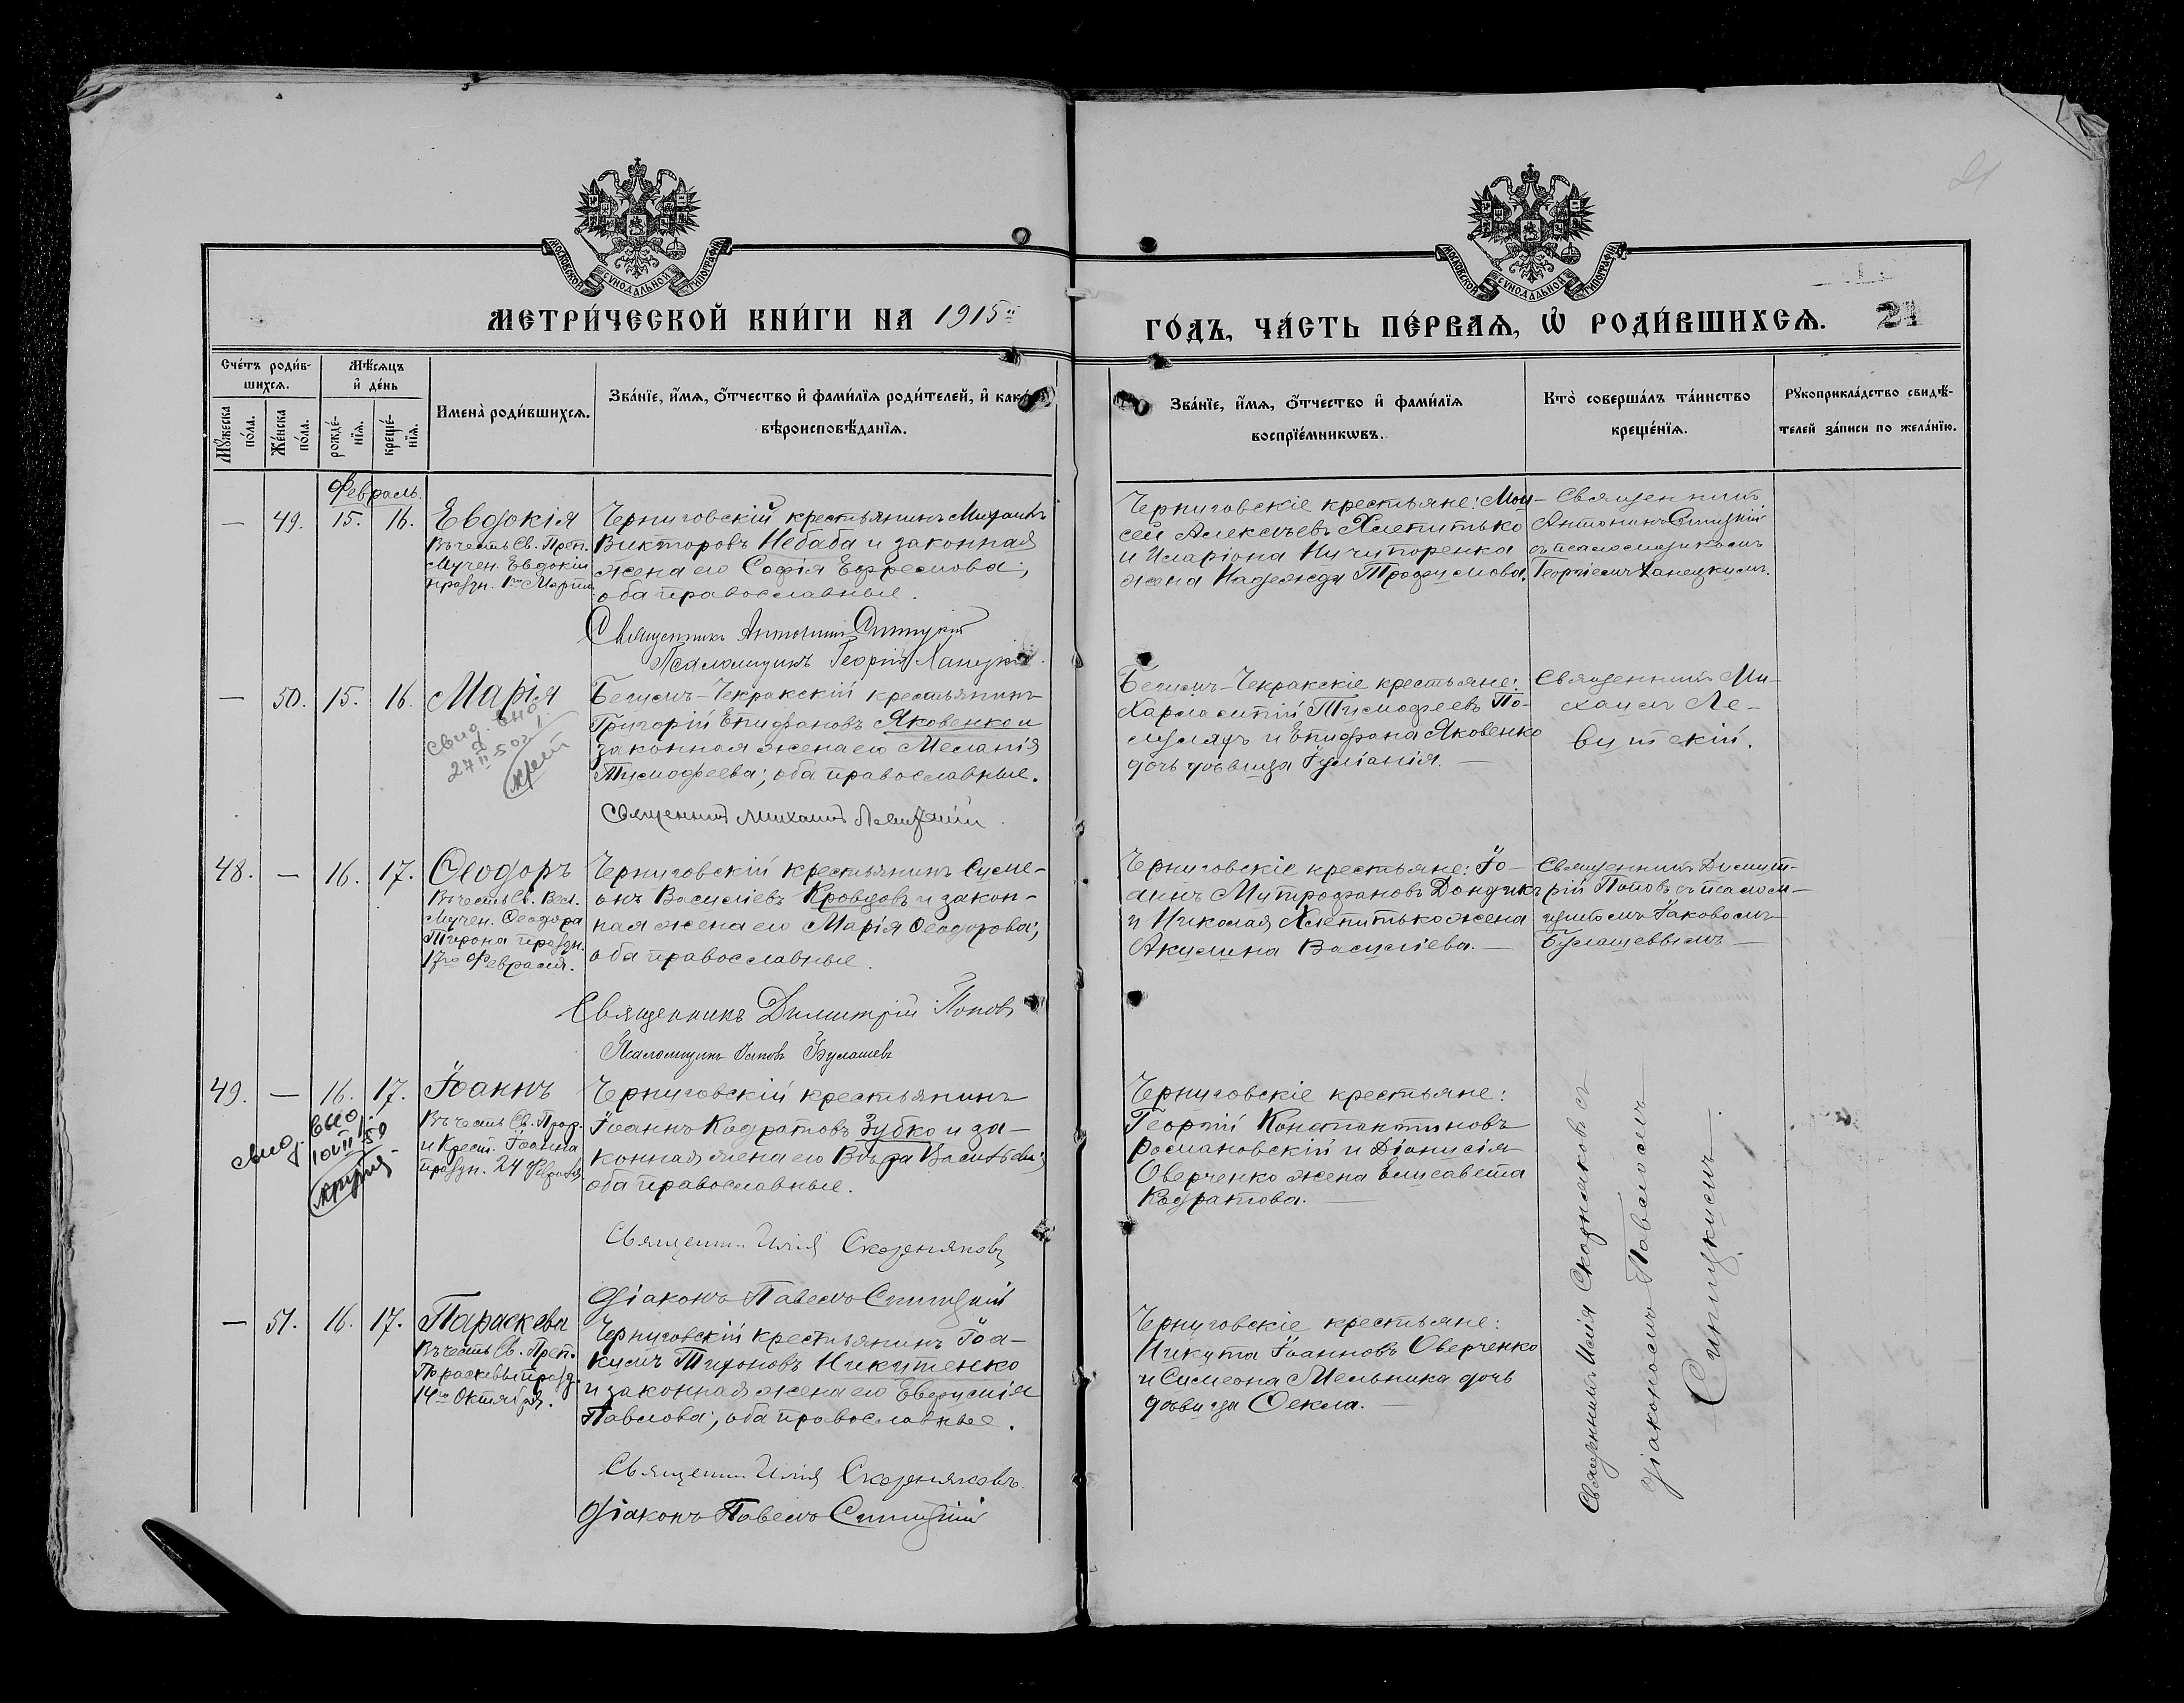 МОСКОВСКОЙ СѴНОДАЛЬНОЙ ТИПОГРАФІИ
МОСКОВСКОЙ СѴНОДАЛЬНОЙ ТИПОГРАФІИ
МЕТРИ́ЧЕСКОЙ КНИ́ГИ НА 1915й
ГО́ДЪ, ЧА́СТЬ ПЕ́РВАѦ, Ѡ҆ РОДИ́ВШИХСѦ. 21
Сче́тъ роди́в-
шихсѧ.
Мꙋ́жеска по́ла.
Же́нска по́ла.
Мѣ́сѧцъ
и҆ де́нь
рожде́-
нїѧ.
креще́-
нїѧ.
Имена̀ роди́вшихсѧ.
Зва́нїе, и҆́мѧ, ѻ҆́тчество и҆ фами́лїѧ роди́телей, и҆ како́
вѣроисповѣ́данїѧ.
Зва́нїе, и҆́мѧ, ѻ҆́тчество и҆ фами́лїѧ
воспрїе́мникѡвъ.
Кто̀ соверша́лъ та́инство
креще́нїѧ.
Рꙋкоприкла́дство свидѣ́-
телей за́писи по жела́нїю.
Февраль.
— 49. 15. 16. Евдокія
Въ честь Св. Преп.
Мучен. Евдокіи
праздн. 1го Марта
Черниговскій крестьянинъ Михаилъ
Викторовъ Небаба и законная
жена его Софія Ефремова;
оба православные.
Священникъ Антонин Синицкій
Псаломщикъ Георгій Ханецкій.
Черниговскіе крестьяне: Мои-
сей Алексѣевъ Хлепитько
и Иларіона Ничипоренка
жена Надежда Трофимова.
Священникъ
Антонинъ Синицкій
съ псаломщикомъ
Георгіемъ Ханецкимъ.
— 50. 15. 16. Марія
свид. выд.
27 II 50г.
Бегимъ-Чекракскій крестьянинъ
Григорій Епифановъ Яковенко и
законная жена его Меланія
Тимофеева; оба православные.
Священникъ Михаилъ Левитскій.
Бегимъ-Чекракскіе крестьяне:
Харлампій Тимофеевъ По-
и Епифана Яковенко
дочь дѣвица Іуліанія. —
Священникъ Ми-
хаилъ Ле-
витскій.
48. — 16. 17. Ѳеодоръ
Въ честь Св. Вел.
Мучен. Ѳеодора
Тирона праздн.
17го Февраля.
Черниговскій крестьянинъ Симе-
онъ Василіевъ Кровцовъ и закон-
ная жена его Марія Ѳеодорова;
оба православные.
Священникъ Димитрій Попов
Псаломщикъ Іаковъ Булашевъ
Черниговскіе крестьяне: Іо-
аннъ Митрофановъ Дондикъ
и Николая Хлепитько жена
Акилина Василіева. —
Священникъ Димит-
рій Поповъ съ псалом-
щикомъ Іаковомъ
Булашевымъ —
49. — 16. 17. Іоаннъ
свид. выд.
10 VII 50
Въ честь Св. Прор.
и Крест. Іоанна
праздн. 24 Февраля.
Черниговскій крестьянинъ
Іоаннъ Кодратовъ Зубко и за-
конная жена его Вѣра Василіева;
оба православные.
Священникъ Илія Скорняковъ
Діаконъ Павелъ Синицкій
Черниговскіе крестьяне:
Георгій Константиновъ
Романовскій и Діонисія
Оверченко жена Елисавета
Кодратова. —
— 51. 16. 17. Параскева
Въ честь Св. Преп.
Параскевы празд.
14го Октября.
Черниговскій крестьянинъ Іоа-
кимъ Тихоновъ Никитенко
и законная жена его Евфимія
Павлова; оба православные.
Священникъ Илія Скорняковъ.
Діаконъ Павелъ Синицкій
Черниговскіе крестьяне:
Никита Іоанновъ Оверченко
и Симеона Мельника дочь
дѣвица Ѳекла. —
Священникъ Илія Скорняковъ съ
діакономъ Павломъ
Синицкимъ.